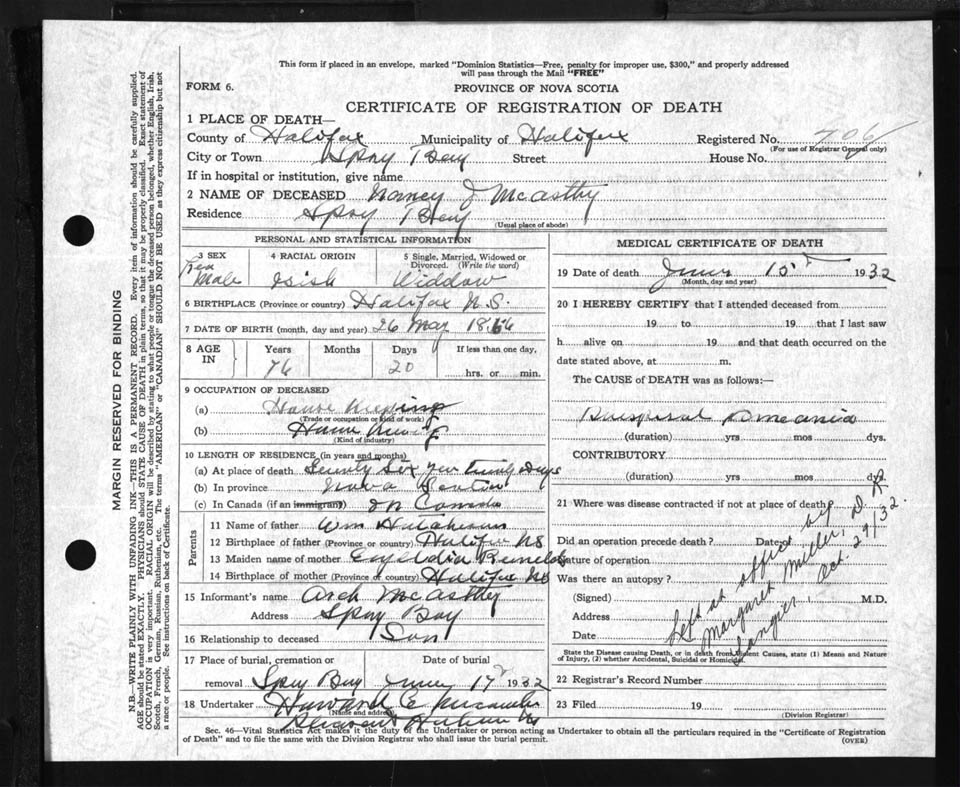 This form if placed in an envelope, marked "Dominion Statistics—Free, penalty for improper use, $300," and properly addressed
will pass through the Mail "FREE"
FORM 6.
PROVINCE OF NOVA SCOTIA
CERTIFICATE OF REGISTRATION OF DEATH
1 PLACE OF DEATH—
County of Halifax Municipality of Halifax Registered No. 706
(For use of Registrar General only)
City or Town Spry Bay Street House No.
If in hospital or institution, give name
2 NAME OF DECEASED Nancy J McCarthy
Residence Spry Bay
(Usual place of abode)
PERSONAL AND STATISTICAL INFORMATION
3 SEX 4 RACIAL ORIGIN 5 Single, Married, Widowed or
Divorced. (Write the word)
Fea
Male Irish Widdow
6 BIRTHPLACE (Province or country) Halifax N.S.
7 DATE OF BIRTH (month, day and year) 26 May 1856
8 AGE IN Years Months Days If less than one day,
76 20 hrs. or min.
9 OCCUPATION OF DECEASED
(a) House Keeping
(Trade or occupation or kind of work)
(b) House Keeping
(Kind of industry)
10 LENGTH OF RESIDENCE (in years and months)
(a) At place of death Seventy Six year Days
(b) In province Nova Scotia
(c) In Canada (if an immigrant) In Canada
Parents
11 Name of father Wm
12 Birthplace of father (Province or country) Halifax NS
13 Maiden name of mother
14 Birthplace of mother (Province or country) Halifax NS
15 Informant's name Arch McCarthy
Address Spry Bay
16 Relationship to deceased Son
17 Place of burial, cremation or Date of burial
removal Spry Bay June 17 1932
18 Undertaker Howard E
(Name and address)
MEDICAL CERTIFICATE OF DEATH
19 Date of death June 15 1932
(Month, day and year)
20 I HEREBY CERTIFY that I attended deceased from
19 to 19 that I last saw
h alive on 19 and that death occurred on the
date stated above, at m.
The CAUSE of DEATH was as follows:—
(duration) yrs mos dys.
CONTRIBUTORY
(duration) yrs mos dys.
21 Where was disease contracted if not at place of death?
Did an operation precede death? Date of
Nature of operation
Was there an autopsy?
(Signed) M.D.
Address
Date
Left at office by
Margaret Muller, D. R.
Tangier, Oct. 29/32.
State the Disease causing Death, or in death from Violent Causes, state (1) Means and Nature
of Injury, (2) whether Accidental, Suicidal or Homicidal
22 Registrar's Record Number
23 Filed 19
(Division Registrar)
Sec. 46—Vital Statistics Act makes it the duty of the Undertaker or person acting as Undertaker to obtain all the particulars required in the "Certificate of Registration
of Death" and to file the same with the Division Registrar who shall issue the burial permit.
(OVER)
MARGIN RESERVED FOR BINDING
N.B.—WRITE PLAINLY WITH UNFADING INK—THIS IS A PERMANENT RECORD. Every item of information should be carefully supplied.
AGE should be stated EXACTLY. PHYSICIANS should STATE CAUSE OF DEATH in plain terms, so that it may be properly classified. Exact statement of
OCCUPATION is very important. RACIAL ORIGIN will be described by stating to what people or tongue the deceased person belonged, whether English, Irish,
Scotch, French, German, Russian, Ruthenian, etc. The terms "AMERICAN" or "CANADIAN" SHOULD NOT BE USED as they express citizenship but not
a race or people. See instructions on back of Certificate.